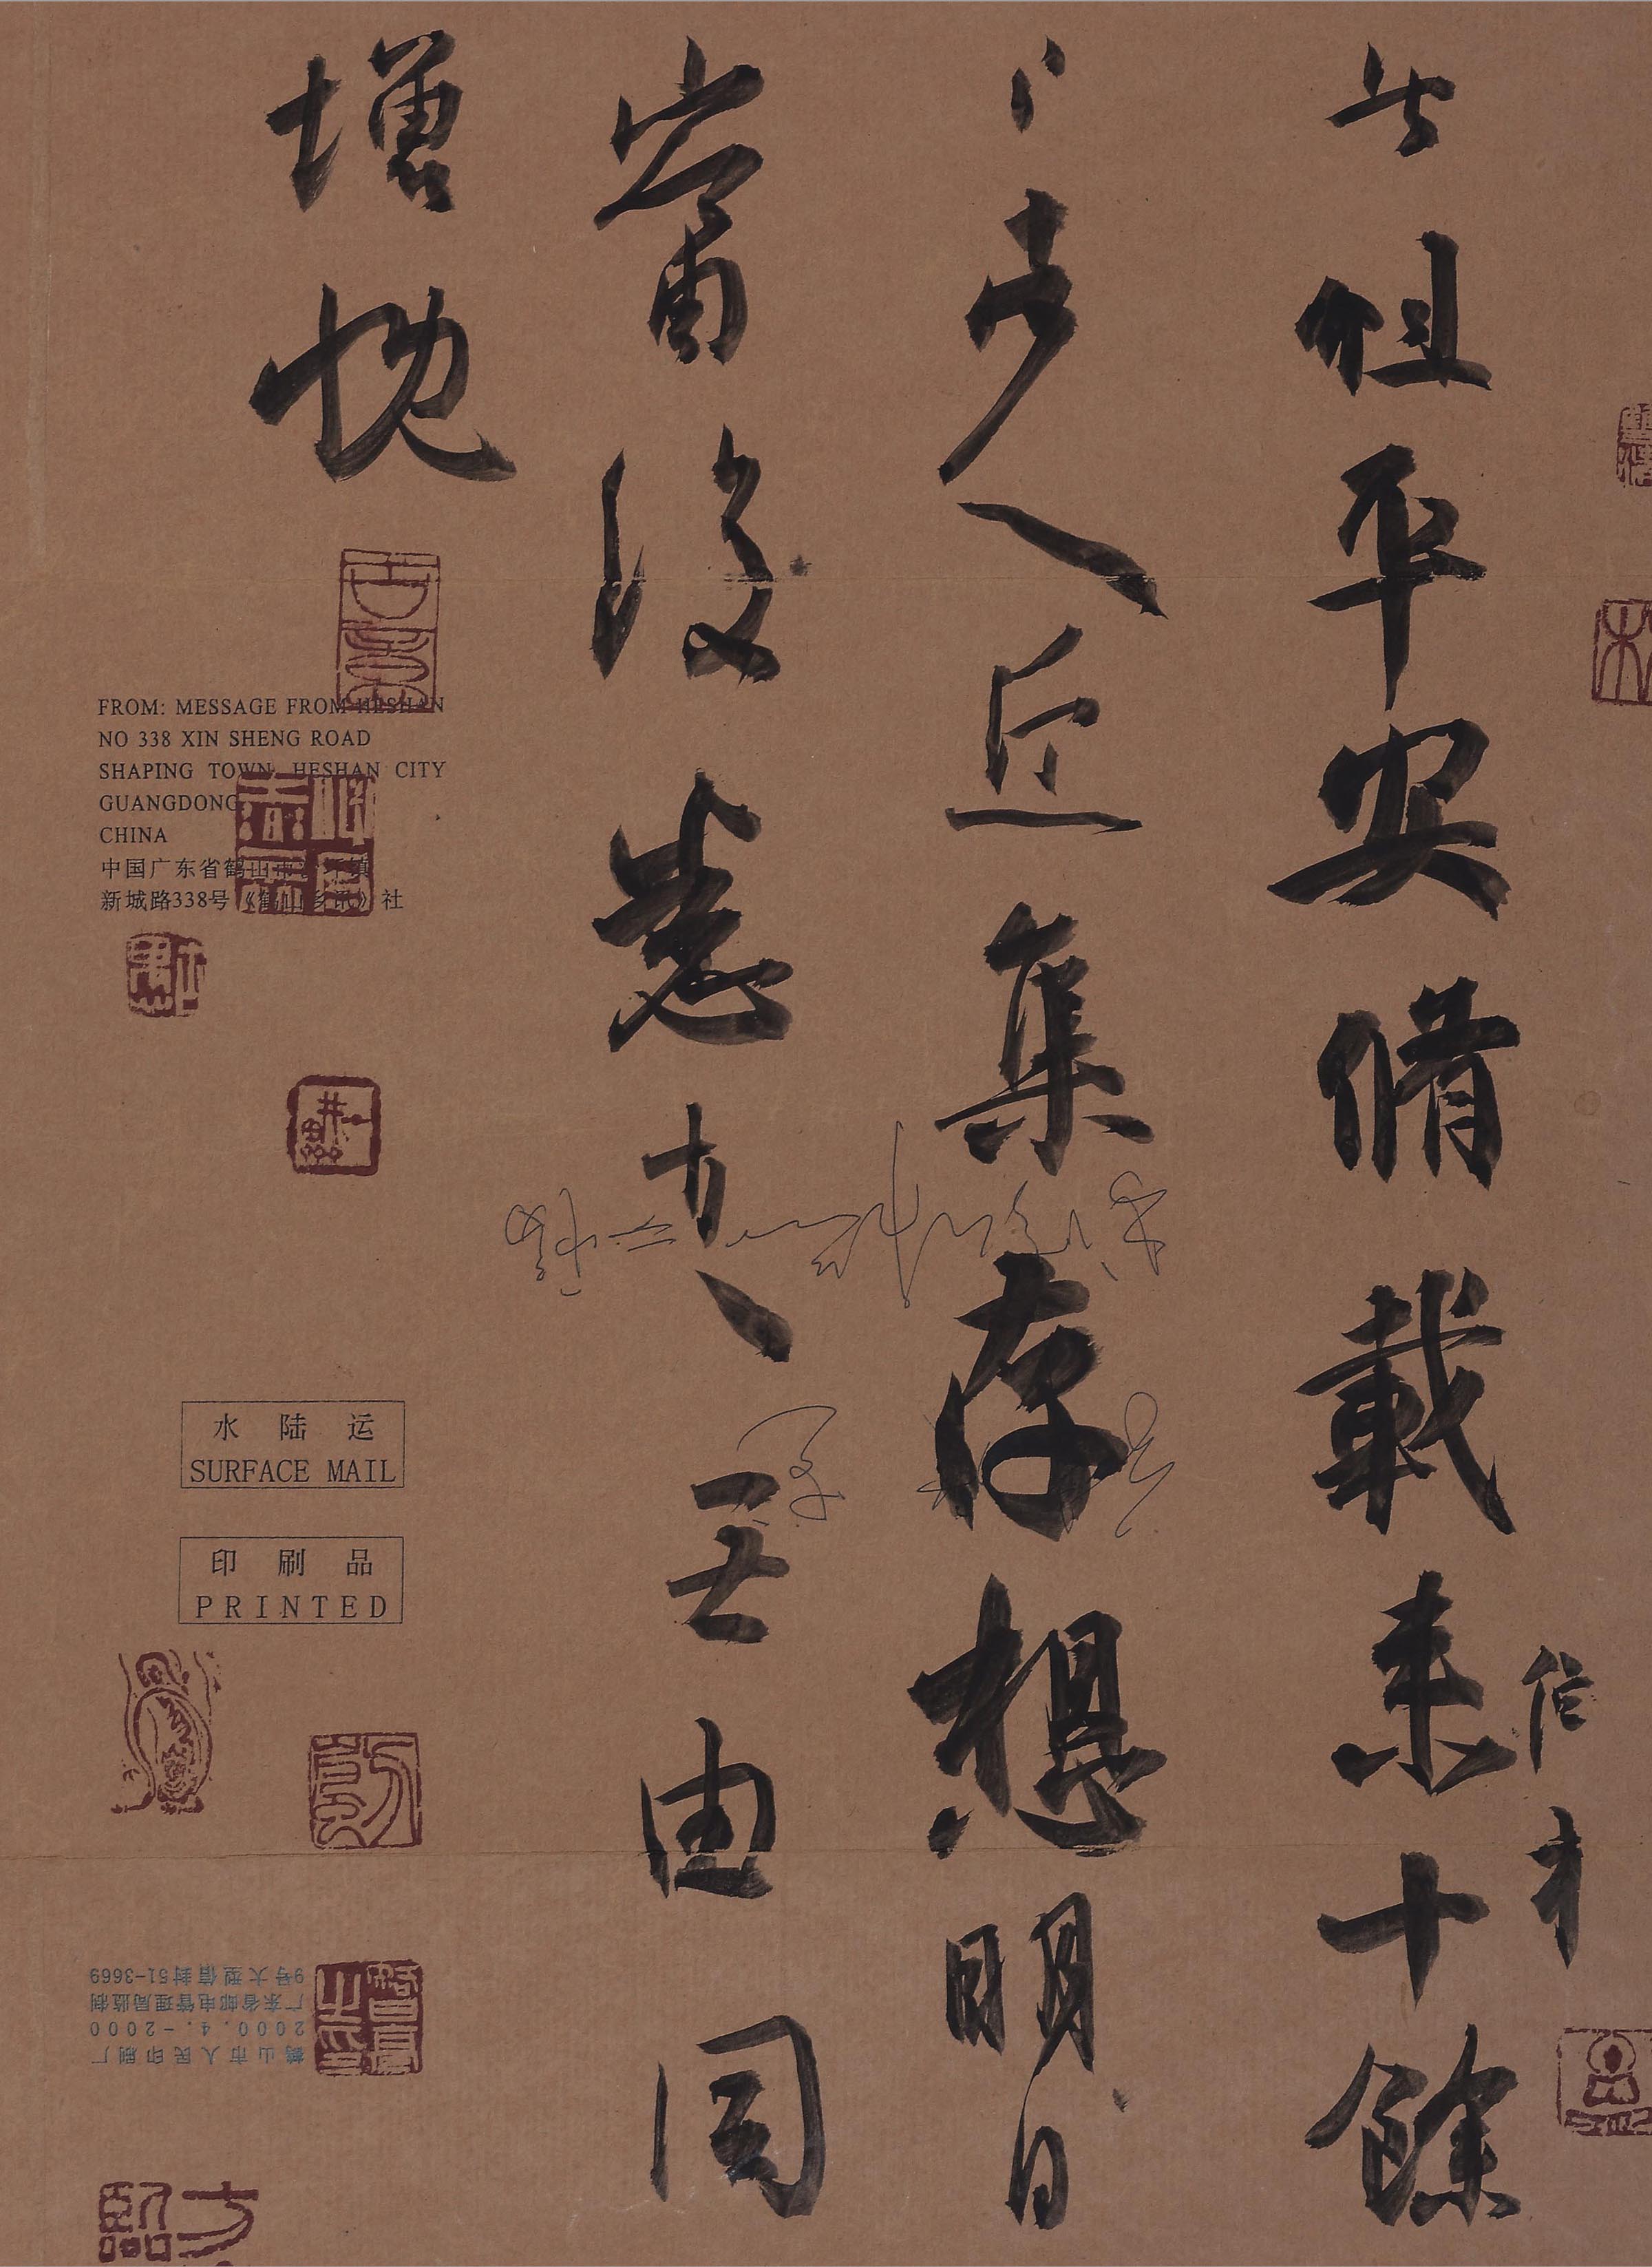 此粗平安脩載来十餘
日諸人近集存想明日
當復悉来无由同
增慨
信
FROM: MESSAGE FROM HESHAN
NO 338 XIN SHENG ROAD
SHAPING TOWN, HESHAN CITY
GUANGDONG
CHINA
中国广东省鹤山市沙坪镇
新城路338号《鹤山乡讯》社
水陆运
SURFACE MAIL
印刷品
PRINTED
鹤山市人民印刷厂
2000.4.-2000
广东省邮电管理局监制
9号大型信封51-3669